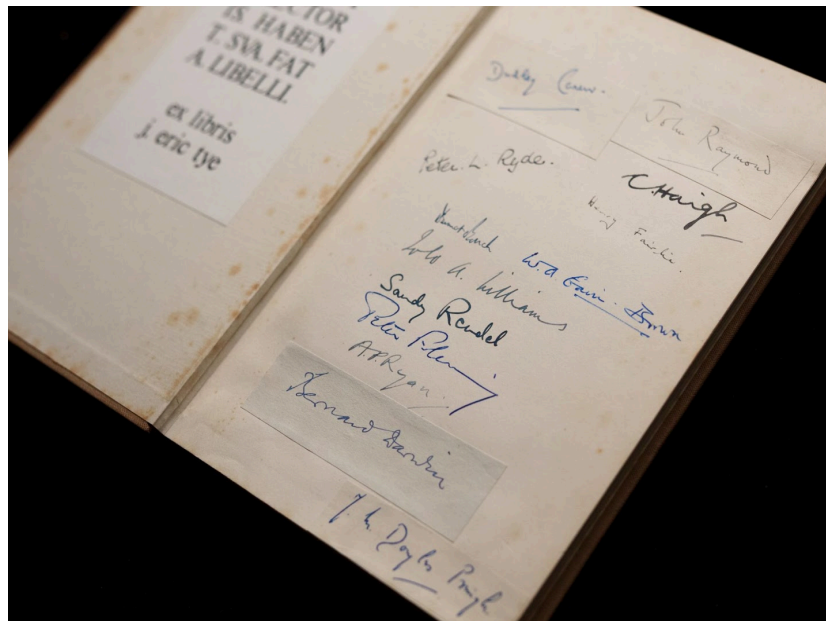 ECTOR
IS. HABEN
T. SVA. FAT
A. LIBELLI.
ex libris
j. eric tye
Dudley Carew.
John Raymond
Peter L. Ryde.
C Haigh
Henry Fairlie.
W. A. Gain. Brown
Iolo A. Williams
Sandy Rendel
Peter Fleming
A.P. Ryan.
Bernard Darwin
J. M. Doyle